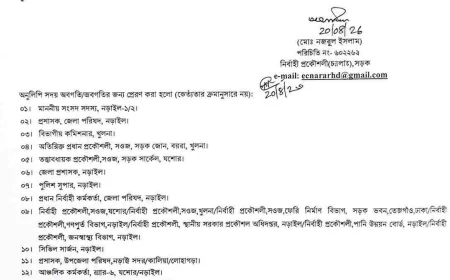 ২০/০৪/২৬
(মোঃ নজরুল ইসলাম)
পরিচিতি নং- ৬০২২৬২
নির্বাহী প্রকৌশলী(চঃদাঃ), সড়ক
e-mail: ecnararhd@gmail.com
২০/৪/২৬
অনুলিপি সদয় অবগতি/অবগতির জন্য প্রেরণ করা হলো (জ্যেষ্ঠতার ক্রমানুসারে নয়):
০১। মাননীয় সংসদ সদস্য, নড়াইল-১/২।
০২। প্রশাসক, জেলা পরিষদ, নড়াইল।
০৩। বিভাগীয় কমিশনার, খুলনা।
০৪। অতিরিক্ত প্রধান প্রকৌশলী, সওজ, সড়ক জোন, বয়রা, খুলনা।
০৫। তত্ত্বাবধায়ক প্রকৌশলী, সওজ, সড়ক সার্কেল, যশোর।
০৬। জেলা প্রশাসক, নড়াইল।
০৭। পুলিশ সুপার, নড়াইল।
০৮। প্রধান নির্বাহী কর্মকর্তা, জেলা পরিষদ, নড়াইল।
০৯। নির্বাহী প্রকৌশলী,সওজ,যশোর/নির্বাহী প্রকৌশলী,সওজ,খুলনা/নির্বাহী প্রকৌশলী,সওজ,ফেরি নির্মাণ বিভাগ, সড়ক ভবন,তেজগাঁও,ঢাকা/নির্বাহী
প্রকৌশলী,গণপূর্ত বিভাগ,নড়াইল/নির্বাহী প্রকৌশলী, স্থানীয় সরকার প্রকৌশল অধিদপ্তর, নড়াইল/নির্বাহী প্রকৌশলী,পানি উন্নয়ন বোর্ড, নড়াইল/নির্বাহী
প্রকৌশলী, জনস্বাস্থ্য বিভাগ, নড়াইল।
১০। সিভিল সার্জন, নড়াইল।
১১। প্রশাসক, উপজেলা পরিষদ, নড়াইল সদর/কালিয়া/লোহাগড়া।
১২। আঞ্চলিক কর্মকর্তা, র‍্যাব-৬, যশোর/নড়াইল।